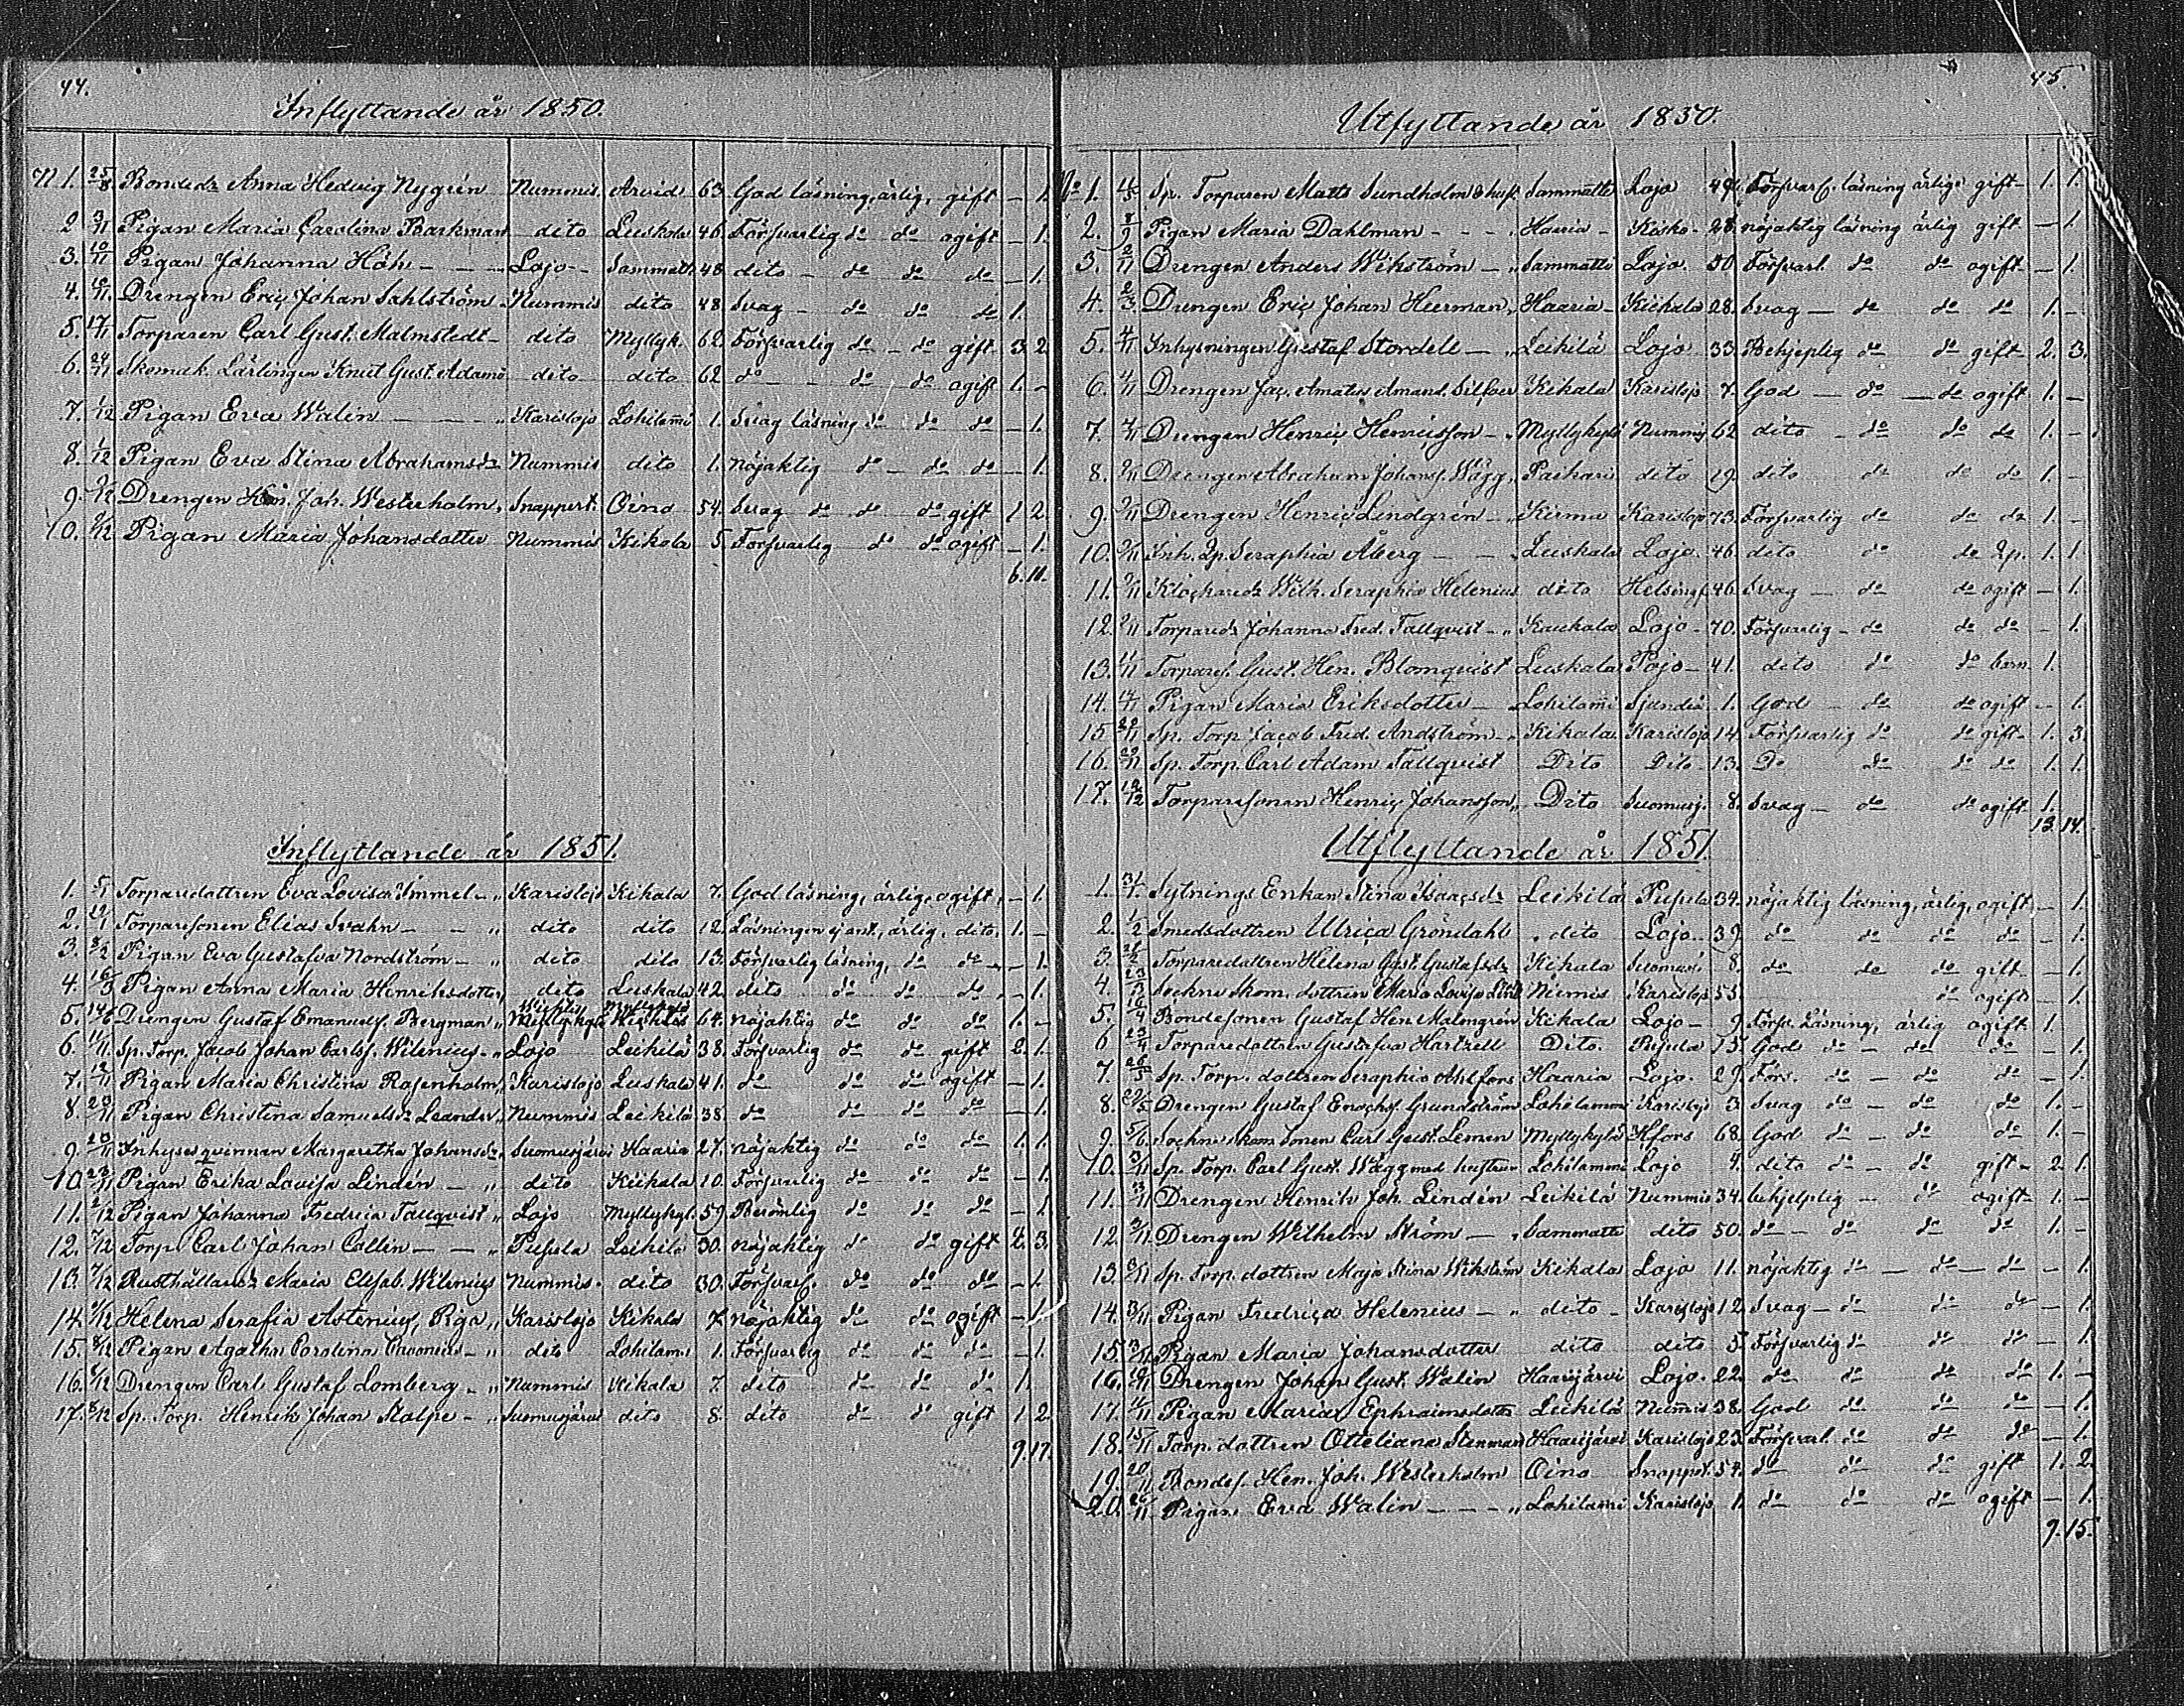 44.
Inflyttande år 1850.
N 1. 25/8 Bondedr Anna Hedvig Nygrén Nummis Arvid 63 God läsning, ärlig, gift — 1.
2 3/11 Pigan Maria Carolina Barkman dito Leuskala 46 Försvarlig do do ogift — 1.
3. 10/11 Pigan Johanna Höh — — Lojo — Sammatti 48 dito — do do do — 1.
4. Drengen Eric Johan Sahlström Nummis dito 48 Svag — do do do 1.
5. 17/11 Torparen Carl Gust. Malmstedt — dito Myllyk. 62 Försvarlig do — do gift 3 2
6. 24/11 Skomak. Lärlingen Knut Gust. Adams dito dito 62 do — do do ogift 1. —
7. 1/12 Pigan Eva Walin — — — Karislojo Lohilami 1. Svag läsning do do do — 1.
8. 1/12 Pigan Eva Stina Abrahamsdr Nummis dito 1. Nöjaktig do — do do — 1.
9. Drengen Joh. Westerholm, Snappert. Oino 54. Svag do do do gift 1 2.
10. Pigan Maria Johansdotter Nummis Kikala 5 Försvarlig do do ogift — 1.
6. 11.
Inflyttande år 1851.
1. 5/1 Torparedottren Eva Lovisa Immel — „ Karislojo Kikala 7. God läsning, ärlig, ogift, — 1.
2. Torparesonen Elias Svahn — — „ dito dito 12. Läsningen ej ant., ärlig, dito, 1. —
3. Pigan Eva Gustafva Nordström — „ dito dito 13. Försvarlig läsning, do do — 1.
4. 16/3 Pigan Anna Maria Henriksdotter, dito Leuskala 42. dito do do do — 1.
5. Drengen Gustaf Emanuels. Bergman „ Wichtis 64. nöjaktig do do do 1. —
6. Sp. Torp. Jacob Johan Carls. Wilenius — „ Lojo Leikilä 38. Försvarlig do do gift 2. 1.
7. Pigan Maria Christina Rosenholm, Karislojo Leuskala 41. do do do ogift — 1.
8. 23/11 Pigan Christina Samuelsdr Leander „ Nummis Leikilä 38 do do do do — 1.
9. 23/11 Inhysesqvinnan Margaretha Johansdr „ Suomusjärvi Haaria 27. nöjaktig do do do 1. 1.
10. 23/11 Pigan Erika Lovisa Lindén — „ dito Kikala 10. Försvarlig do do do — 1.
11. Pigan Johanna Fredrica Tallqvist „ Lojo Myllykyl. 59. Berömlig do do do — 1.
12. Torp. Carl Johan Collin — — „ Pusula Leikilä 30. nöjaktig do do gift 2. 3.
13. Rusthållaredr Maria Elisab. Wilenius Nummis. dito 30. Försvarl. do do do — 1.
14. Helena Serafia Astenius, Piga „ Karislojo Kikala 7 nöjaktig do do ogift — 1.
15. Pigan Agatha Carolina — „ dito Lohilami 1. Försvarlig do do do — 1.
16. Drengen Carl Gustaf Lomberg — „ Nummis Kikala 7. dito do do do 1.
17. Sp. Torp. Henrik Johan Stolpe — „ Suomusjärvi dito 8. dito do do gift 1. 2.
9. 17.
45.
Utfyttande år 1850.
No 1. Sp. Torparen Matts Sundholm & hust. Sammatti Lojo 49. Försvarl. läsning ärlig gift — 1. 1.
2. Pigan Maria Dahlman — — — Haaria — Kisko — 28. nöjaktig läsning ärlig gift — 1.
3. Drengen Anders Wikström — „ Sammatti Lojo. 50 Försvarl. do do ogift — 1.
4. Drengen Eric Johan Heerman, Haaria — Kikala 28. Svag — do do do 1. —
5. 4/11 Inhysningen Gustaf Stordell — „ Leikilä Lojo 33. Behjeplig do do gift 2. 3.
6. 4/11 Drengen Jac. Amatus Amand. Silfver Kikala Karislojo 7. God — do — do ogift 1. —
7. Drengen Henric Henricsson — „ Myllykylä Nummis 62 dito — do do do 1. —
8. Drengen Abraham Johans. Wägg „ Paikari dito 19. dito do do do 1. —
9. Drengen Henric Lindgrén — „ Karislojo 73. Försvarlig do do do 1. —
10. Inh. Seraphia Åberg — — „ Leuskala Lojo. 46 dito do do 1. 1.
11. Klockaredr Wilh. Seraphia Helenius dito Helsingf. 46. Svag — do do ogift — 1.
12. Torparedr Johanna Fred. Tallqvist — „ Kaukala Lojo — 70. Försvarlig — do do do — 1.
13. 11/11 Torpares. Gust. Hen. Blomqvist Leuskala Pojo — 41. dito do do barn 1.
14. Pigan Maria Eriksdotter — Lohilami Sjundeå 1. God — do do ogift — 1.
15. Sp. Torp. Jacob Fred. Andström — „ Kikala Karislojo 14 Försvarlig do do gift — 1. 3.
16. Sp. Torp. Carl Adam Tallqvist Dito Dito 13. Do do do do 1. 1.
17. Torparesonen Henric Johansson „ Dito Suomusj. 8. Svag — do do ogift 1.
13. 14.
Utflyttande år 1851.
1. 31/1 Sytnings Enkan Stina Isaacsdr Leikilä Pusula 34. nöjaktig läsning, ärlig, ogift — 1.
2. 1/2 Smedsdottren Ulrica Gröndahl „ dito Lojo. 39. do do do do — 1.
3. Torparedottren Helena Gust. Gustafsdr Kikala Suomusj. 8. do do do gift — 1.
4. Sochne Skom. dottren Maria Lovisa Niemis Karislojo 55. do ogift — 1.
5. 16/4 Bondesonen Gustaf Hen. Malmgrén Kikala Lojo — 9. Försv. Läsning, ärlig ogift 1.
6. Torparedottren Gustafva Hartzell Dito. Pusula 15. God do — do do — 1.
7. Sp. Torp. dottren Seraphia Ahlfors Haaria Lojo. 29. Förs. do — do do — 1.
8. Drengen Gustaf Enochs. Grundström Lohilammi Karislojo 3. Svag do — do do 1. —
9. 5/6 Sochne skom. Sonen Carl Gust. Lemen Myllykylä Hfors 68. God do — do do 1. —
10. Sp. Torp. Carl Gust. Wägg med hustrun Lohilammi Lojo 4. dito do — do gift — 2. 1.
11. Drengen Henrik Joh. Lindén Leikilä Nummis 34. behjelplig — do ogift 1. —
12. Drengen Wilhelm Ström — „ Sammatti dito 50. do — do do do 1. —
13. Sp. Torp. dottren Maja Stina Wikström Kikala Lojo 11. nöjaktig do — do — do — 1.
14. Pigan Fredrica Helenius — „ dito — Karislojo 12. Svag — do do do — 1.
15. Pigan Maria Johansdotter dito dito 5. Försvarlig do do do — 1.
16. Drengen Johan Gust. Walin Haarijärvi Lojo. 22. do do do do 1. —
17. Pigan Maria Ephraimsdotter Leikilä Nummis 38. God do do do — 1.
18. Torp. dottren Otteliana Stenman Haarijärvi Karislojo 23. Försvarl. do do do — 1.
19. 20/11 Bondes. Hen. Joh. Westerholm Oino Snappert. 54. do do do gift 1. 2.
20. Pigan Eva Walin — — — „ Lohilami Karislojo 1. do do do ogift — 1.
9. 15.